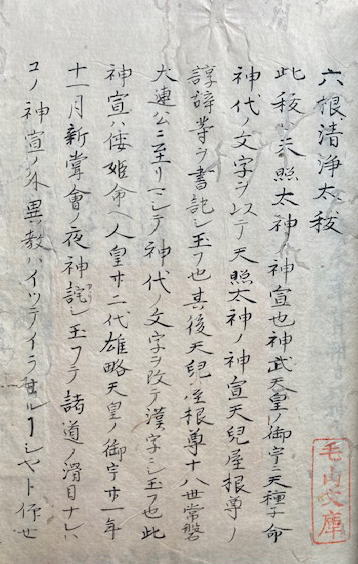 六根清浄太祓
此祓ハ天照太神ノ神宣也神武天皇ノ御宇ニ天種子命
神代ノ文字ヲ以テ天照太神ノ神宣天兒屋根尊ノ
諄辞等ヲ書記シ玉フ也其後天兒屋根尊十八世常磐
大連公ニ至リマシテ神代ノ文字ヲ改テ漢字ニシ玉フ也此
神宣ハ倭姫命人皇廿二代雄略天皇ノ御宇廿一年
十一月新嘗會ノ夜神詫シ玉フテ諸道ノ滑目ナレハ
コノ神宣ノ外異教ハイツテイラサル
ト作セ
毛内文庫